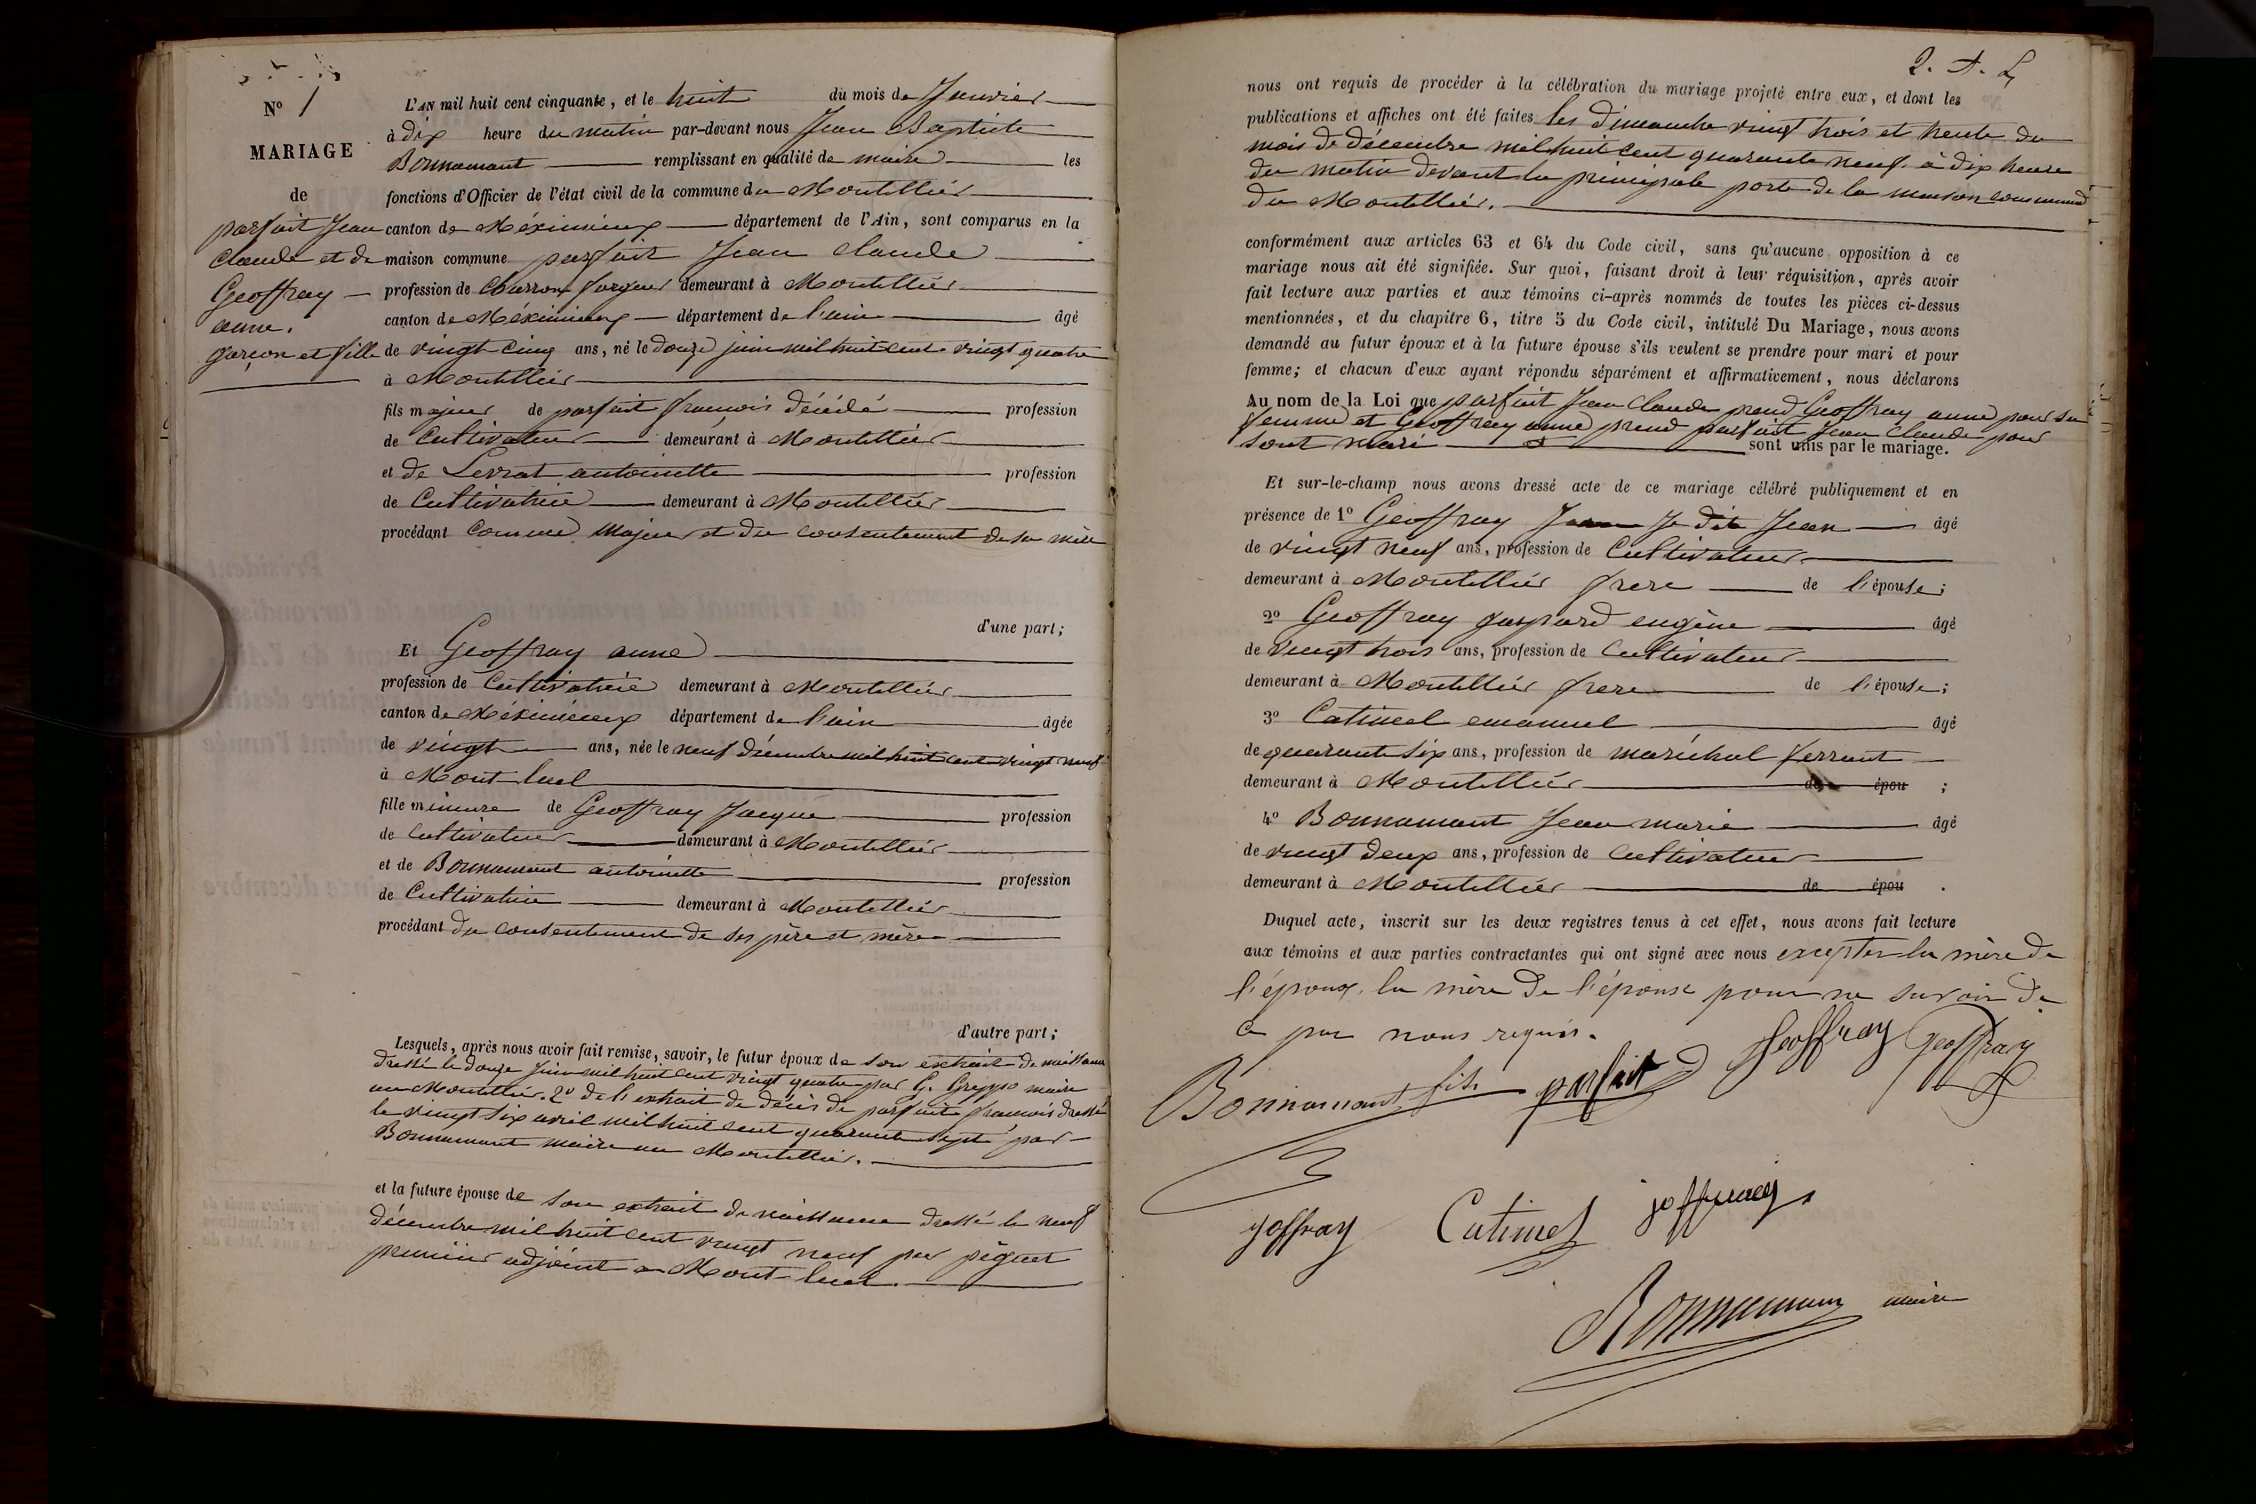 N.o 1
MARIAGE
de
parfait Jean
Claude et de
Geoffray
anne.
garçon et fille
L'AN mil huit cent cinquante, et le huit du mois de Janvier
à dix heure du matin par-devant nous Jean Baptiste
Bonnamant remplissant en qualité de maire les
fonctions d'Officier de l'état civil de la commune du Montellier
canton de Méximieux département de l'Ain, sont comparus en la
maison commune parfait Jean Claude
profession de Charron forgeur demeurant à Montellier
canton de Méximieux département de l'ain âgé
de vingt cinq ans, né le douze juin mil huit cent vingt quatre
à Montellier
fils majeur de parfait francois décédé profession
de Cultivateur demeurant à Montellier
et de Levrat antoinette profession
de Cultivatrice demeurant à Montellier
procédant comme majeur et du consentement de sa mère
d'une part;
Et Geoffray anne
profession de Cultivatrice demeurant à Montellier
canton de Méximieux département de l'ain âgée
de vingt ans, née le neuf décembre mil huit cent vingt neuf
à Mont luel
fille mineure de Geoffray Jacque profession
de Cultivateur demeurant à Montellier
et de Bonnamant antoinette profession
de Cultivatrice demeurant à Montellier
procédant du consentement de ses père et mère
d'autre part;
Lesquels, après nous avoir fait remise, savoir, le futur époux de son extrait de naissance
dressé le douze juin mil huit cent vingt quatre par G. Greppo maire
au Montellier. 2o de l'extrait de décès de parfait francois dressé
le vingt six avril mil huit cent quarante sept par
Bonnamant maire au Montellier.
et la future épouse de son extrait de naissance dressé le neuf
décembre mil huit cent vingt neuf par péguet
premier adjoint a Mont-luel.
nous ont requis de procéder à la célébration du mariage projeté entre eux, et dont les
publications et affiches ont été faites les dimanche vingt trois et trente du
mois de décembre mil huit cent quarante neuf à dix heure
du matin devant la principale porte de la maison commune
du Montellier.
conformément aux articles 63 et 64 du Code civil, sans qu'aucune opposition à ce
mariage nous ait été signifiée. Sur quoi, faisant droit à leur réquisition, après avoir
fait lecture aux parties et aux témoins ci-après nommés de toutes les pièces ci-dessus
mentionnées, et du chapitre 6, titre 5 du Code civil, intitulé Du Mariage, nous avons
demandé au futur époux et à la future épouse s'ils veulent se prendre pour mari et pour
femme; et chacun d'eux ayant répondu séparément et affirmativement, nous déclarons
Au nom de la Loi que parfait Jean Claude prend Geoffray anne pour sa
femme et Geoffray anne prend parfait Jean Claude pour
sont mari sont unis par le mariage.
Et sur-le-champ nous avons dressé acte de ce mariage célébré publiquement et en
présence de 1o Geoffray Je dit Jean âgé
de vingt neuf ans, profession de Cultivateur
demeurant à Montellier frere de l'épouse;
2o Geoffray gaspard eugène âgé
de vingt trois ans, profession de Cultivateur
demeurant à Montellier frere de l'épouse;
3o Catimel emanuel âgé
de quarante six ans, profession de maréchal ferrant
demeurant à Montellier de épou ;
4o Bonnamant Jean marie âgé
de vingt deux ans, profession de Cultivateur
demeurant à Montellier de épou .
Duquel acte, inscrit sur les deux registres tenus à cet effet, nous avons fait lecture
aux témoins et aux parties contractantes qui ont signé avec nous excepter la mère de
l'époux. la mère de l'épouse pour ne savoir de
ce par nous requis.
Bonnamant fils parfait Geoffray Geoffray
goffray Catimel joffray
Bonnamant maire